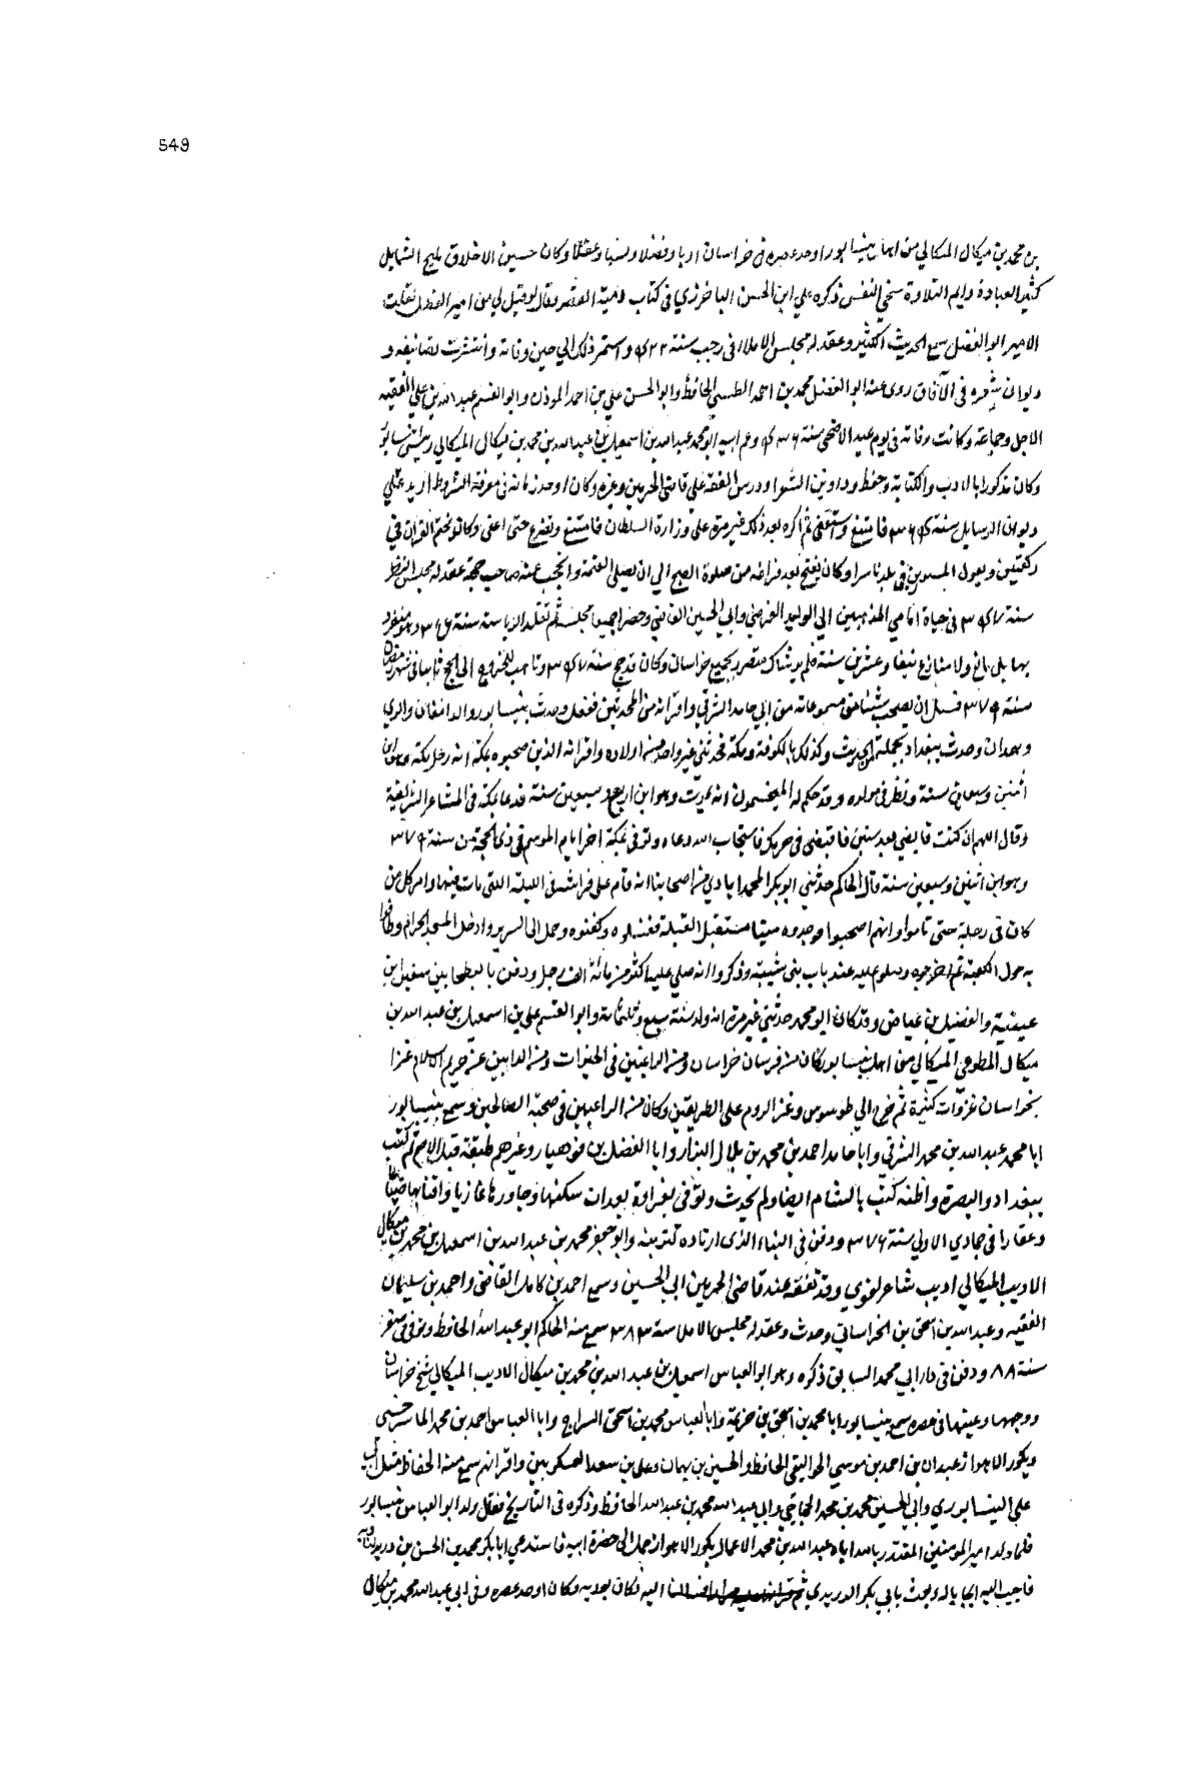 549
بن محمد بن ميكال الميكالي من اهل نيسابور اوحد عصره في خراسان ادبا وفضلا ونسبا وعقلا وكان حسن الاخلاق مليح الشمايل
كثير العبادة دايم التلاوة سخي النفس ذكره علي ابن الحسن الباخرزي في كتاب دمية القصر وقال لو قيل لي من امير الفضل لقلت
الامير ابو الفضل سمع الحديث الكثير وعقد له مجلس الاملاء في رجب سنة واستمر ذلك الي حين وفاته وانتشرت تصانيفه و
ديوان شعره في الآفاق روي عنه ابو الفضل محمد بن احمد الطبسي الحافظ وابو الحسن علي بن احمد الموذن وابو القسم عبد الله بن علي الفقيه
الاجل وجماعة وكانت وفاته في يوم عيد الاضحي سنة وعم ابيه ابو محمد عبد الله بن اسمعيل بن عبد الله بن محمد بن ميكال الميكالي رئيس نيسابور
وكان مذكورا بالادب والكتابة وحفظ دواوين الشعرا ودرس الفقه علي قاضي الحرمين وغيره وكان اوحد زمانه في معرفة الشروط اريد علي
ديوان الرسايل سنة فامتنع واستعفي ثم اكره بعد ذلك غير مرة علي وزارة السلطان فامتنع وتضرع حتى اعفي وكان يختم القرآن في
ركعتين ويعول المستورين في بلده سرا وكان يفتح بعد فراغه من صلوة الصبح الي ان يصلي العتمة ولا يحجب عنه صاحب حجة عقد له مجلس النظر
سنة في حياة امامي المذهبين ابي الوليد القرشي وابي الحسين القاضي وحضرا جميعا مجلسه ثم تقلد الرياسة سنة وهو منفرد
بها بلا مانع ولا منازع نيفا وعشرين سنة وكان قد حج سنة وتاهب للخروج الى الحج ثانيا في شهر رمضان
سنة فسيل ان يصحب شيئا من مسموعاته من ابي حامد الشرقي واقرانه من المحدثين ففعل وحدث بنيسابور والدامغان والري
وهمدان وحدث ببغداد بجملة من الحديث وكذلك بالكوفة ومكة فحدثني غير واحد من اولاده واقرانه الذين صحبوه بمكة انه دخل مكة وهو ابن
اثنين وسبعين سنة ونظر في مولده وقد حكم له المنجمون انه يموت وهو ابن اربع وسبعين سنة فدعا بمكة في المشاعر الشريفة
وقال اللهم ان كنت قابضي بعد سنين فاقبضني في حرمك فاستجاب الله دعاه وتوفي بمكة اخر ايام الموسم في ذي الحجة من سنة
وهو ابن اثنين وسبعين سنة قال الحاكم حدثني ابو بكر المحمدابادي من اصحابنا انه قام على فراشه في الليلة التي مات فيها وامر كل من
كان في رحله حتى قاموا وانهم اصبحوا فوجدوه ميتا مستقبل القبلة فغسلوه وكفنوه وحمل الى السرير وادخل المسجد الحرام وطافوا
به حول الكعبة ثم اخرجوه وصلوا عليه عند باب بني شيبة وذكروا انه صلي عليه اكثر من مائة الف رجل ودفن بالبطحا بين سفيان بن
عيينة والفضيل بن عياض وقد كان ابو محمد حدثني غير مرة انه ولد سنة سبع وثلثماية وابو القسم علي بن اسمعيل بن عبد الله بن
ميكال المطوعي الميكالي من اهل نيسابور كان من فرسان خراسان ومن الراغبين في الخيرات ومن الذابين عن حريم الاسلام غزا
بخراسان غزوات كثيرة ثم خرج الي طرسوس وغزا الروم علي الطريقين وكان من الراغبين في صحبة الصالحين وسمع بنيسابور
ابا محمد عبد الله بن محمد الشرقي وابا حامد احمد بن محمد بن بلال البزاز وابا الفضل بن قوهيار وغيرهم طبقة قبل الاصم ثم كتب
ببغداد والبصرة واظنه كتب بالشام ايضا ولم يحدث وتوفي بفراوة بعد ان سكنها وجاور بها غازيا واقتنا بها ضياعا
وعقارا في جمادي الاولي سنة ودفن في البناء الذي ارتاده لتربته وابو جعفر محمد بن عبد الله بن اسمعيل بن محمد بن ميكال
الاديب الميكالي اديب شاعر لغوي وقد تفقه عند قاضي الحرمين ابي الحسين وسمع احمد بن كامل القاضي واحمد بن سليمان
الفقيه وعبد الله بن اسحق بن الخراساني وحدث وعقد له مجلس الاملاء سنة سمع منه الحاكم ابو عبد الله الحافظ وتوفي في صفر
سنة ٨٨ ودفن في دار ابي محمد السابق ذكره وهو ابو العباس اسمعيل بن عبد الله بن محمد بن ميكال الاديب الميكالي شيخ خراسان
ووجهها وعينها في عصره سمع بنيسابور ابا محمد بن اسحق بن خزيمة وابا العباس محمد بن اسحق السراج وابا العباس احمد بن محمد الماسرجسي
وبكور الاهواز عبدان بن احمد بن موسي الجواليقي الحافظ والحسين بن بهان وعلي بن سعد العسكريين واقرانهم سمع منه الحفاظ مثل ابي
علي النيسابوري وابي الحسين محمد بن محمد الحجاجي وابي عبد الله محمد بن عبد الله الحافظ وذكره في التاريخ فقال ولد ابو العباس بنيسابور
فلما ولد امير المومنين المقتدر بالله اباه عبد الله بن محمد الاعمال بكور الاهواز حمل الى حضرة ابيه فاستدعي ابا بكر محمد بن الحسن بن دريد لتاديبه
فاجيب اليه ايجابا له وبعث بابي بكر الدريدي اليه فكان يوديه وكان اوحد عصره وفي ابي عبد الله محمد بن ميكال